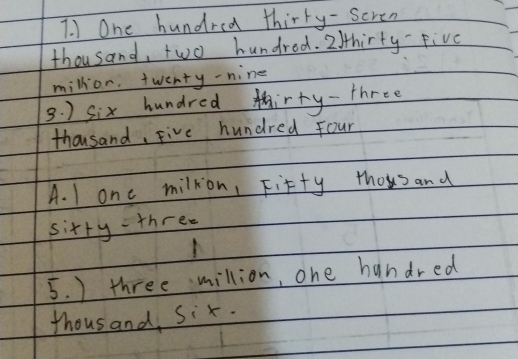 1.) One hundred thirty-seven
thousand, two hundred. 2.) thirty-five
million. twenty-nine
3.) six hundred thirty-three
thousand, five hundred four
4.) one million, fifty thousand
sixty-three
5.) three million, one hundred
thousand, six.